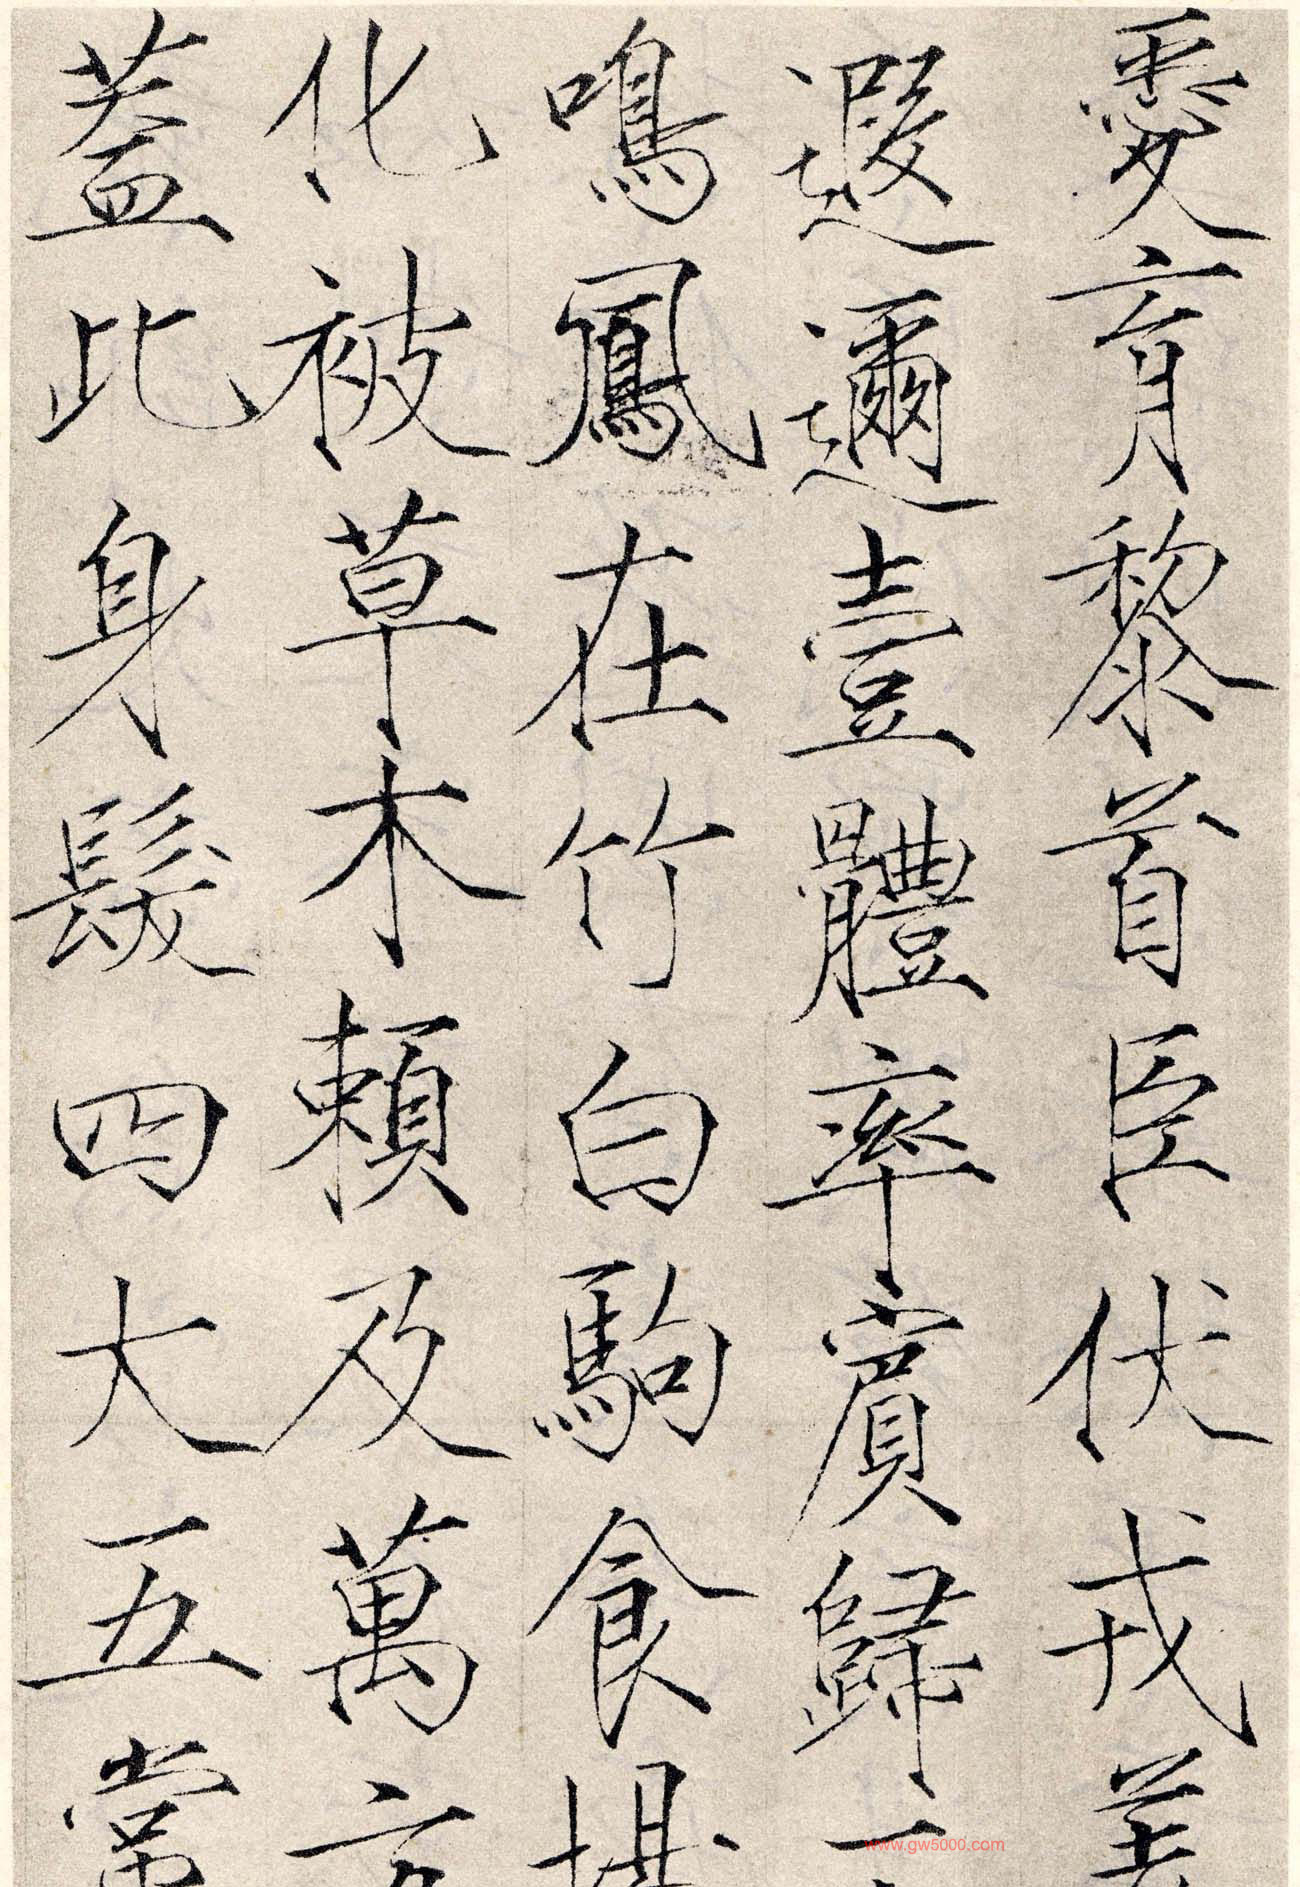 愛育黎首臣伏戎羌
遐邇壹體率賓歸
鳴鳳在竹白駒食
化被草木賴及萬方
蓋此身髮四大五常
www.gw5000.com